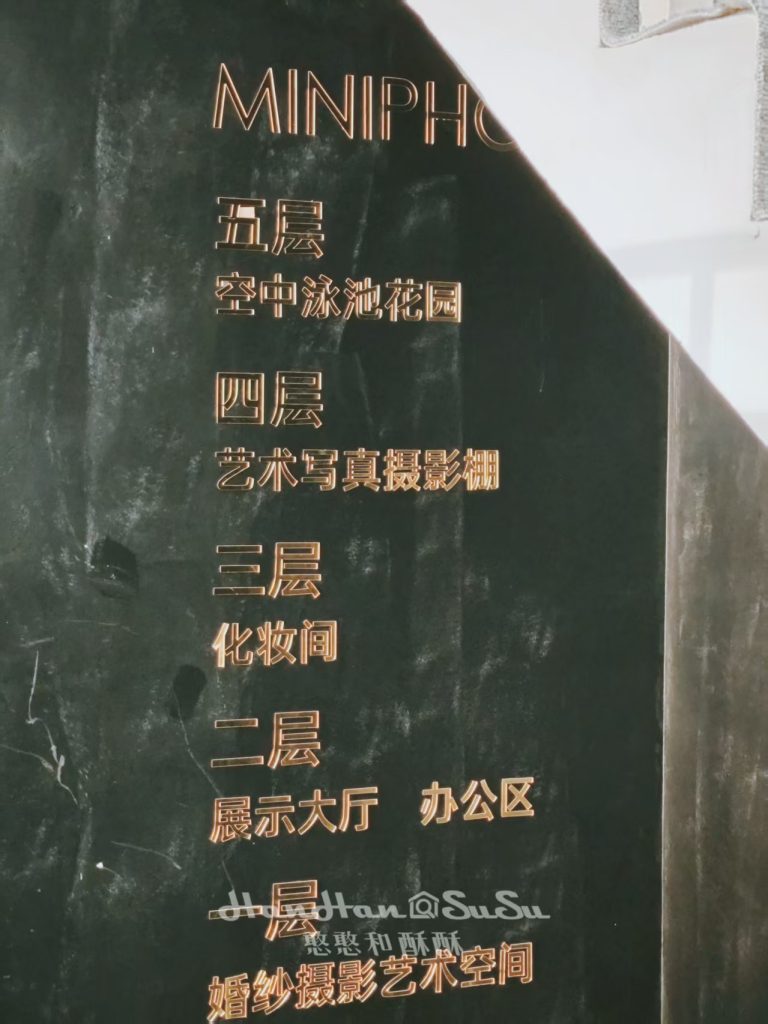 MINIPHO
五层
空中泳池花园
四层
艺术写真摄影棚
三层
化妆间
二层
展示大厅 办公区
一层
HanHan@SuSu
憨憨和酥酥
婚纱摄影艺术空间